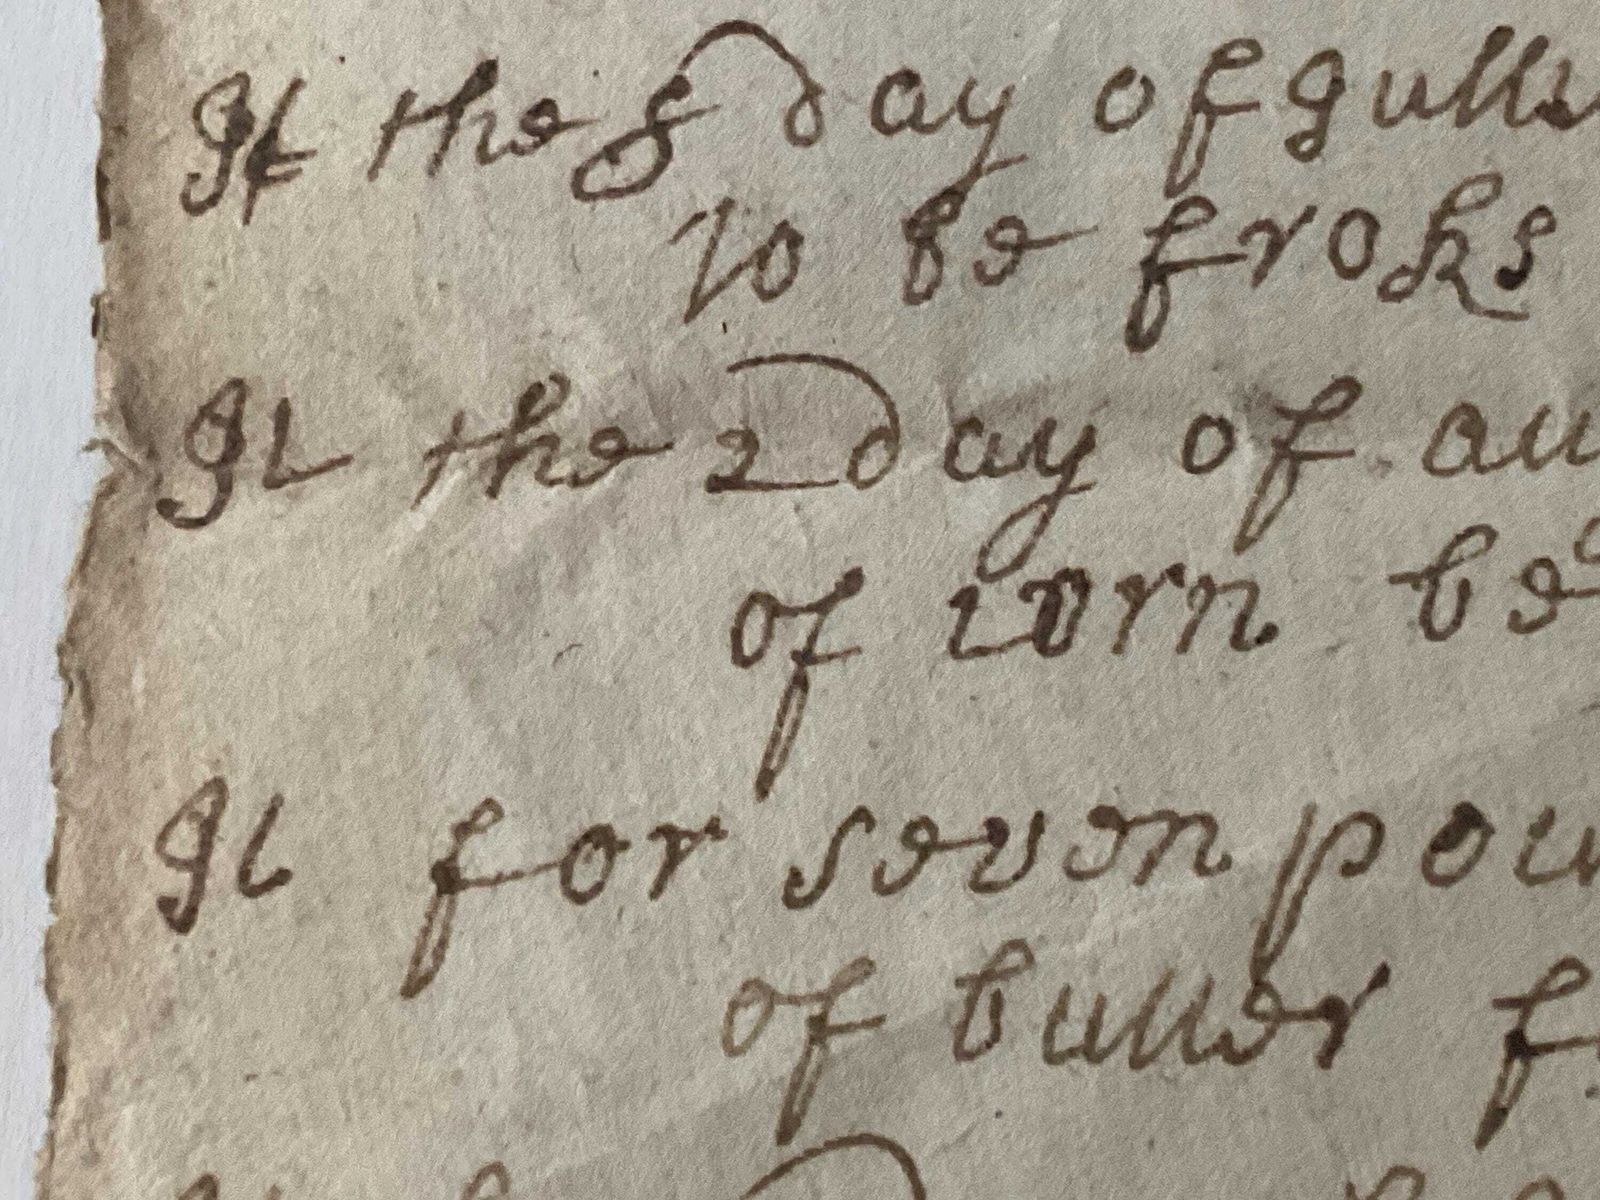 It the 8 day of gully
to be froks
It the 2 day of au
of corn be
It for seven pou
of butter f